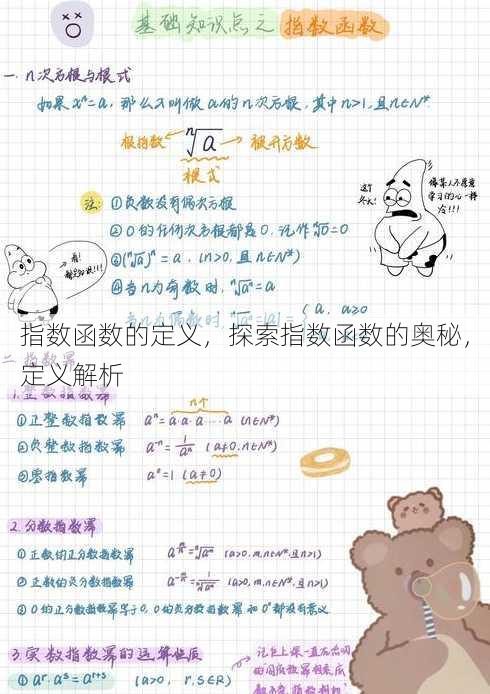 基础知识点之 指数函数
一. n次方根与根式
如果 xⁿ=a, 那么x叫做a的n次方根, 其中n>1, 且n∈N*.
根指数 ⁿ√a 被开方数
根式
注: ①负数没有偶次方根
②0的任何次方根都是0, 记作ⁿ√0=0
③(ⁿ√a)ⁿ=a, (n>0, 且n∈N*)
④当n为奇数时, ⁿ√a=a
当n为偶数时, ⁿ√aⁿ=|a|={a, a≥0
这个
冬天!
像某人不愿意
学习的心一样
冷!!!
指数函数的定义，探索指数函数的奥秘，
定义解析
二. 指数幂
1.整数指数幂
n个
①正整数指数幂 aⁿ=a·a·a…·a (n∈N*)
②负整数指数幂 a⁻ⁿ=1/aⁿ (a≠0, n∈N*)
③零指数幂 a⁰=1 (a≠0)
2.分数指数幂
①正数的正分数指数幂 a^(m/n)=ⁿ√aᵐ (a>0, m,n∈N*, 且n>1)
②正数的负分数指数幂 a^(-m/n)=1/ⁿ√aᵐ (a>0, m,n∈N*, 且n>1)
③0的正分数指数幂等于0, 0的负分数指数幂和0⁰都没有意义
3.实数指数幂的运算性质
①aʳ·aˢ=aʳ⁺ˢ (a>0, r,s∈R)